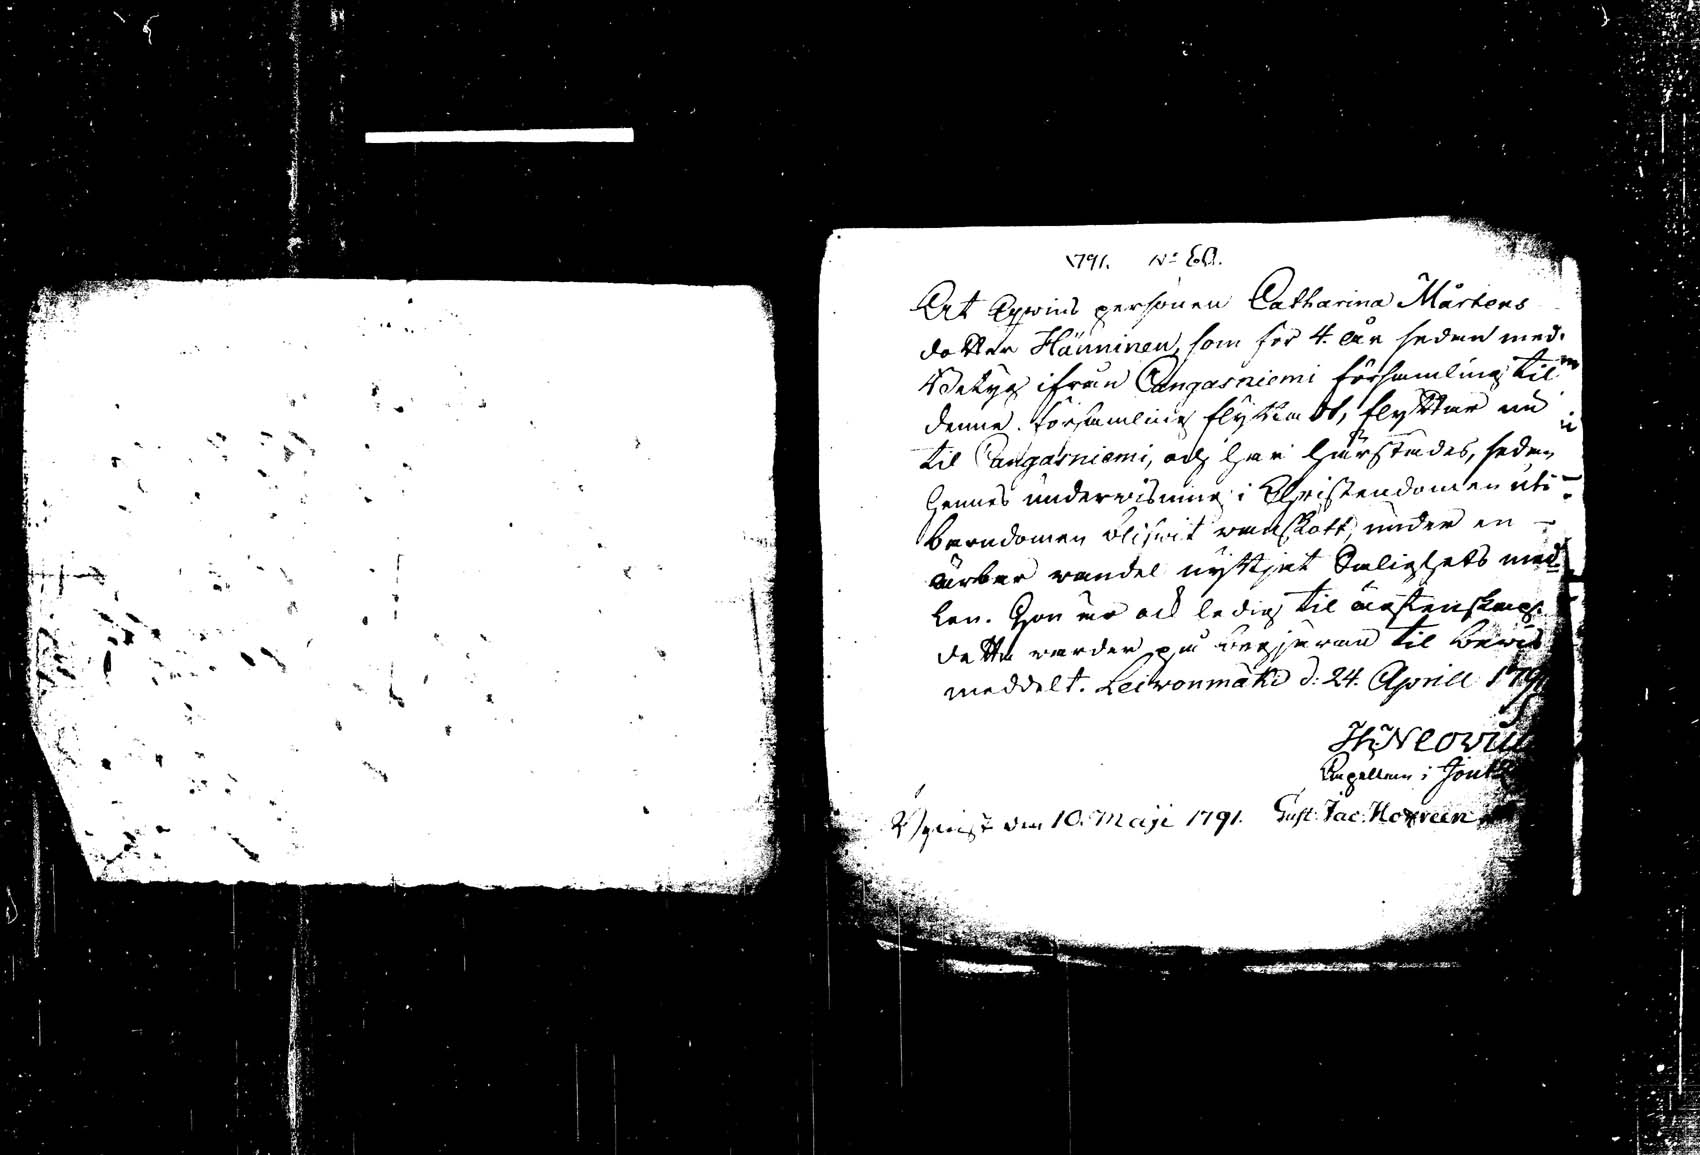 1791. No 60.
At Qwins personen Catharina Mårtens
dotter Hänninen, som för 4. år sedan med
Betyg ifrån Cangasniemi församling til
denne församling flyttadt, flyttar nu
til Cangasniemi, och har härstädes, sedan
hennes underwisning i Christendomen uti
barndomen blifwit wanskött, under en
ärbar wandel nyttjat Salighets med
len. Hon är ock ledig til ägtenskap.
detta warder på begjäran til bewis
meddelt. Leiwonmäki d: 24. Aprill 179
Neovius
Capellan i
den 10. Maji 1791. Gust. Jac.